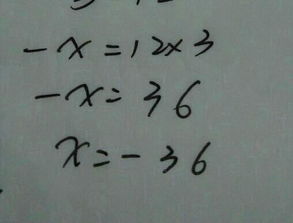 -x=12×3
-x=36
x=-36